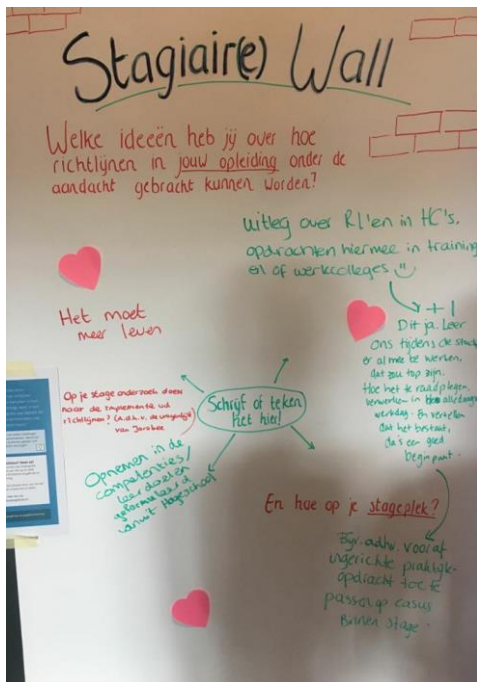 Stagiair(e) Wall
Welke ideeën heb jij over hoe
richtlijnen in jouw opleiding onder de
aandacht gebracht kunnen worden?
uitleg over Rl'en in HC's,
opdrachten hiermee in training
en of werkcolleges
Het moet
meer leven
+1
Dit ja. Leer
ons tijdens de
er al mee te werken,
dat zou top zijn.
Hoe het te raadplegen,
verwerken in alledaagse
werkdag. En vertellen
dat het bestaat,
da's een goed
beginpunt.
Op je stage onderzoek doen
naar de implementatie vd
richtlijnen? (a.d.h.v. de
van Jarabee
Schrijf of teken
het hier!
Opnemen in de
competenties/
leerdoelen
geformuleerd
vanuit Hogeschool
En hoe op je stageplek?
Bijv. adhv. vooraf
ingerichte praktijk-
opdracht toe te
passen op casus
binnen stage.